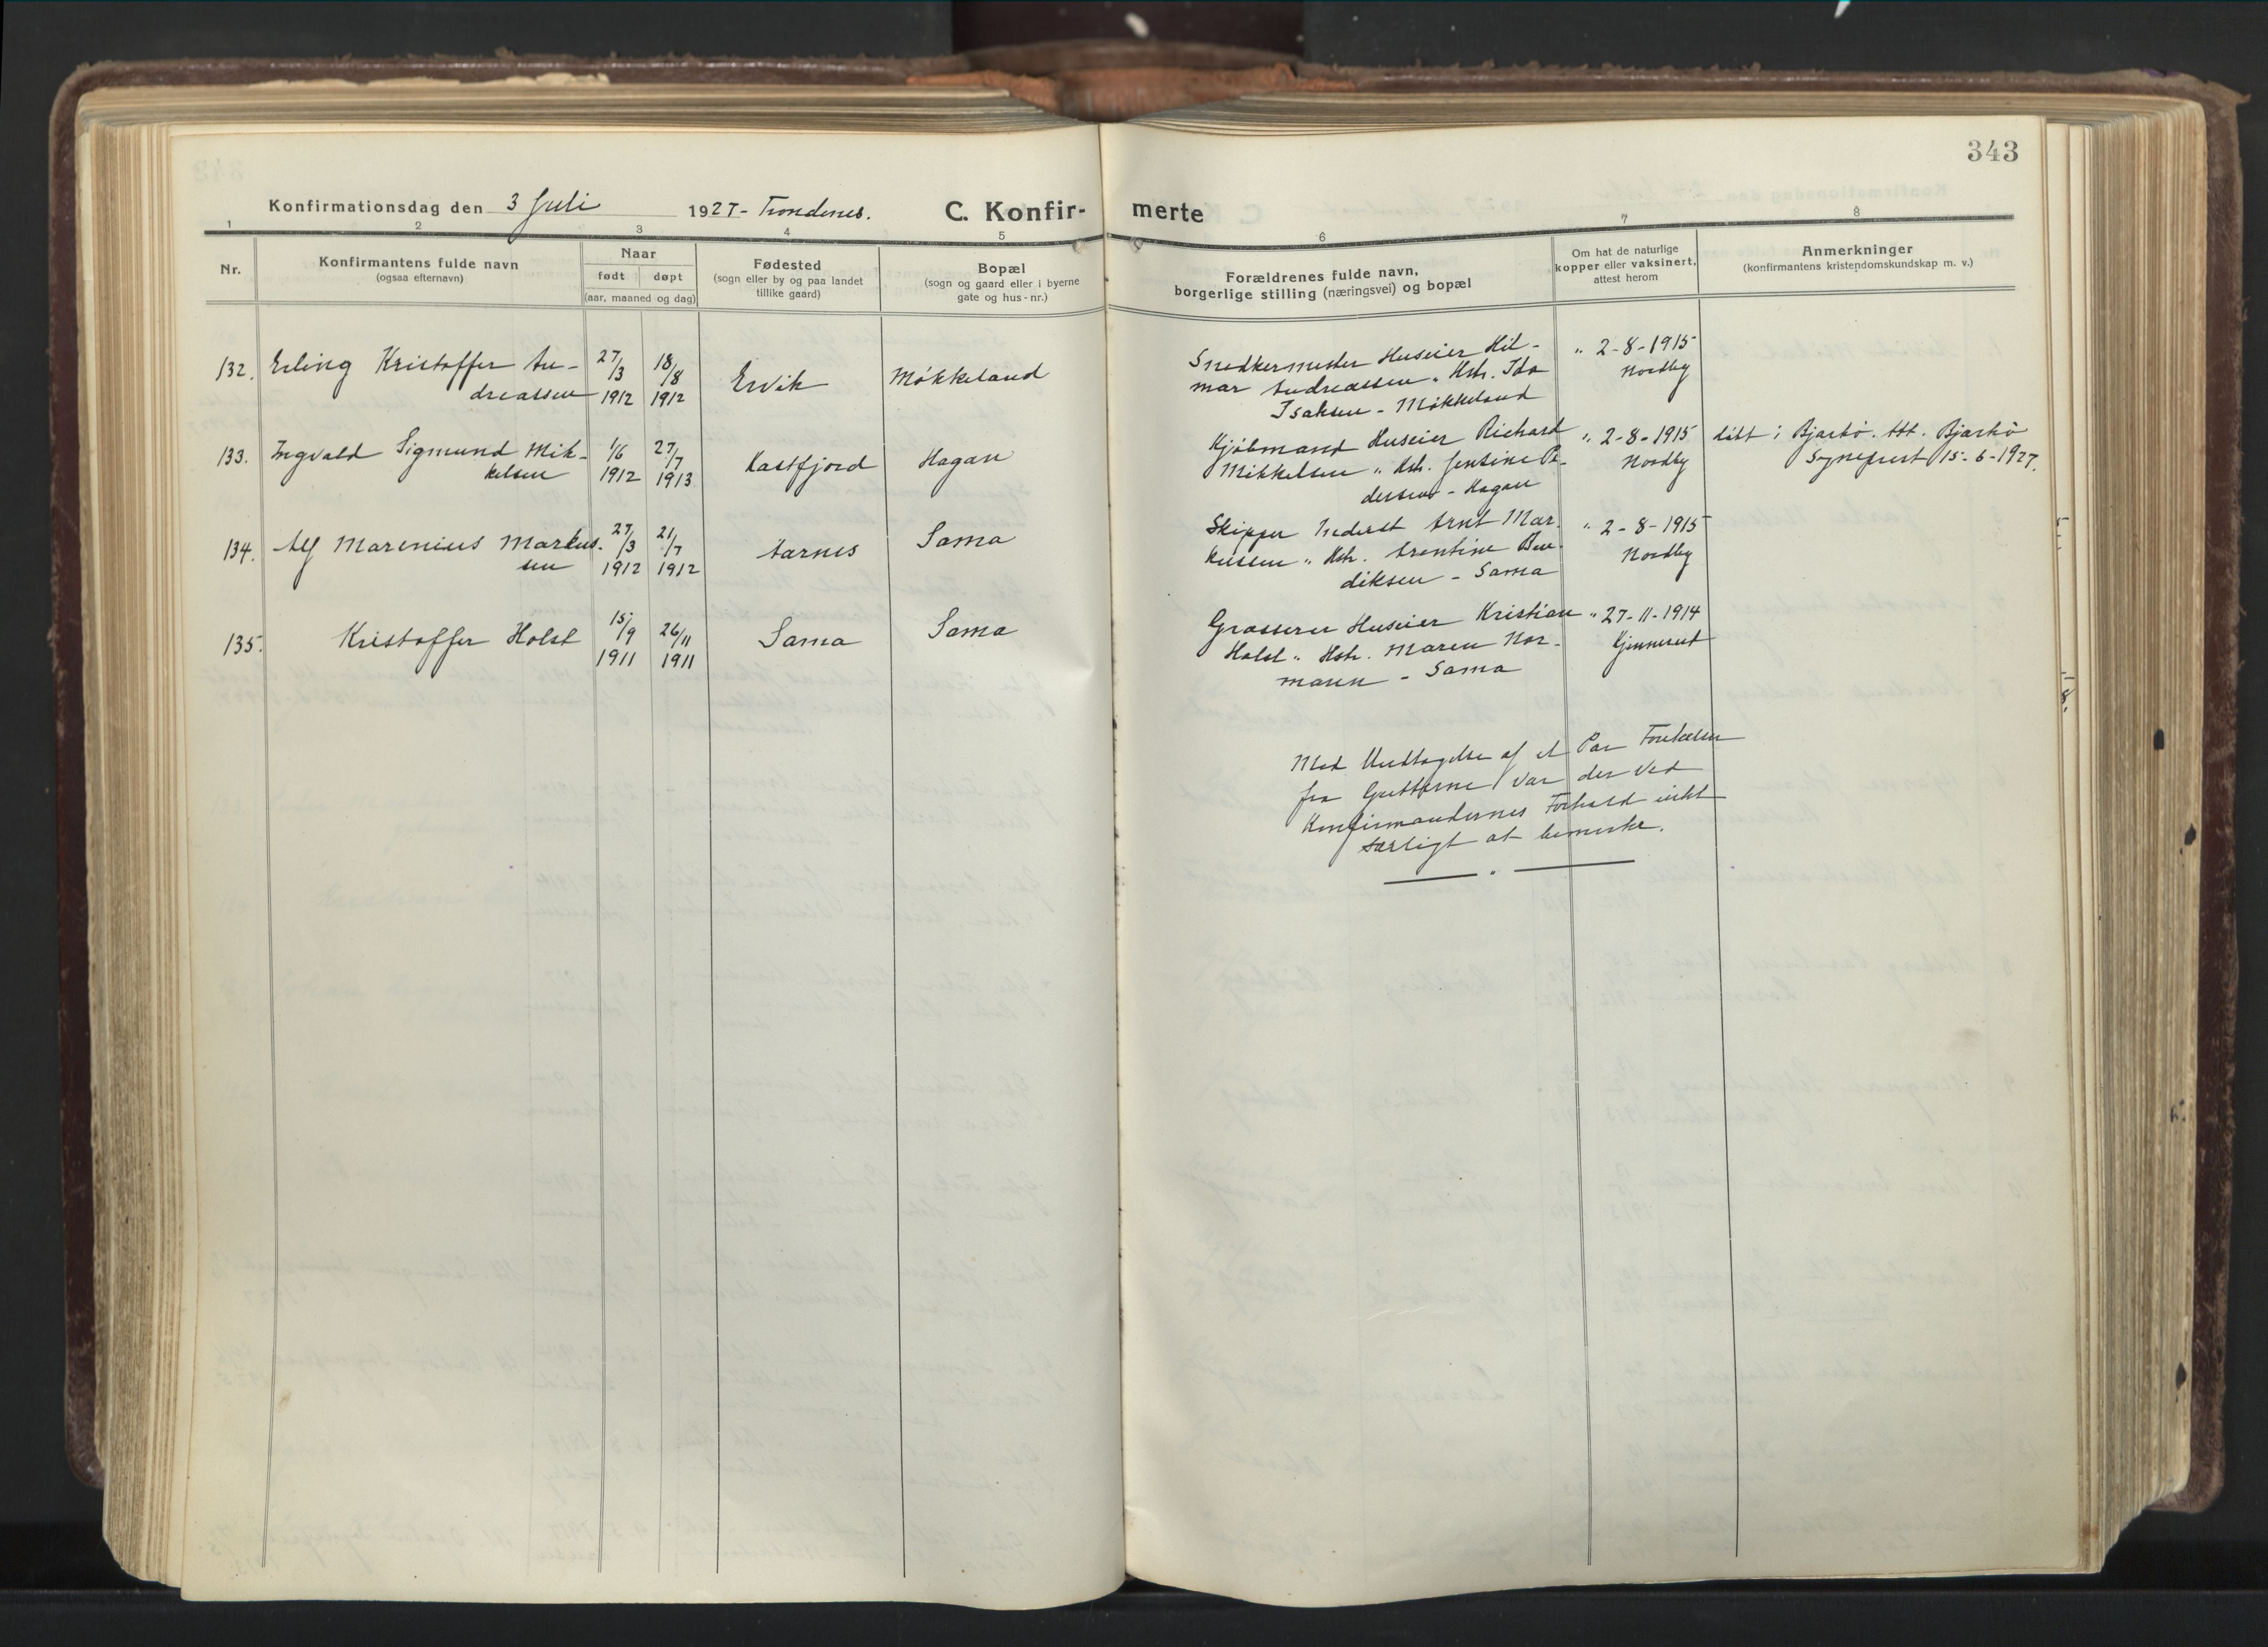 343
Konfirmationsdag den 3 Juli 1927 - Trondenes. C. Konfir- merte
1 2 3 4 5 6 7 8
Nr.
Konfirmantens fulde navn
(ogsaa efternavn)
Naar
født døpt
(aar, maaned og dag)
Fødested
(sogn eller by og paa landet
tillike gaard)
Bopæl
(sogn og gaard eller i byerne
gate og hus-nr.)
Forældrenes fulde navn,
borgerlige stilling (næringsvei) og bopæl
Om hat de naturlige
kopper eller vaksinert,
attest herom
Anmerkninger
(konfirmantens kristendomskundskap m. v.)
132. Erling Kristoffer An-
dreassen
27/3 1912
18/8 1912
Ervik
Møkkeland
Snedkermester Huseier Hil-
mar Andreassen " Hstr. Ida
Isaksen - Møkkeland
" 2-8-1915
Nordby
133. Ingvald Sigmund Mik-
kelsen
1/6 1912
27/7 1913
Kastfjord
Hagan
Kjøbmand Huseier Richard
Mikkelsen " Hstr. Jensine Pe-
dersen - Hagan
" 2-8-1915
Nordby
døbt i Bjarkø. Att. Bjarkø
Sogneprest 15-6-1927.
134. Alf Marenius Markus-
sen
27/3 1912
21/7 1912
Aarnes
Sama
Skipper Inderst Arnt Mar-
kussen " Hstr. Arentine Ben-
diksen - Sama
" 2-8-1915
Nordby
135. Kristoffer Holst
15/9 1911
26/11 1911
Sama
Sama
Grosserer Huseier Kristian
Holst " Hstr. Maren Nor-
mann - Sama
" 27-11-1914
Med Undtagelse af et Par Forseelser
fra Gutterne var der ved
Konfirmandernes Forhold intet
særligt at bemerke.